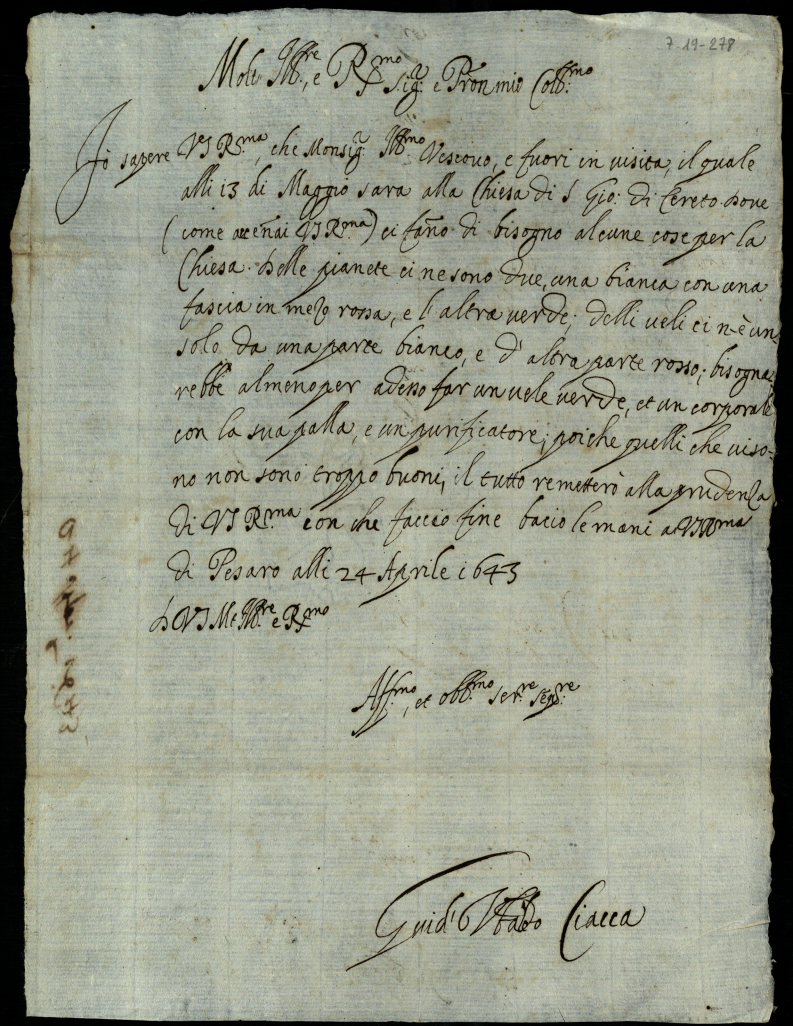 7-19-278
Molt' Ill.re, e R.mo Sig.r e Pron mio Coll.mo
Fò sapere VS R.ma, che Monsig.r Ill.mo Vescovo, e fuori in visita, il quale
alli 13 di Maggio sara alla Chiesa di S Gio: di Cereto dove
(come accenai VS R.ma) ci fano di bisogno alcune cose per la
Chiesa. Delle pianete ci ne sono due, una bianca con una
fascia in mezo rossa, e l'altra verde; delli veli ci n'è un
solo da una parte bianco, e d'altra parte rosso; bisogna-
rebbe almeno per adesso far un vele verde, et un corporale
con la sua palla, e un purificatore; poiche quelli che viso-
no non sono troppo buoni, il tutto remetterò alla prudenza
di VS R.ma con che faccio fine bacio le mani a VS R.ma
di Pesaro alli 24 Aprile 1643
D VS M.t Ill.re e R.mo
Aff.mo, et obb.mo ser.re
Guid' Ciacca